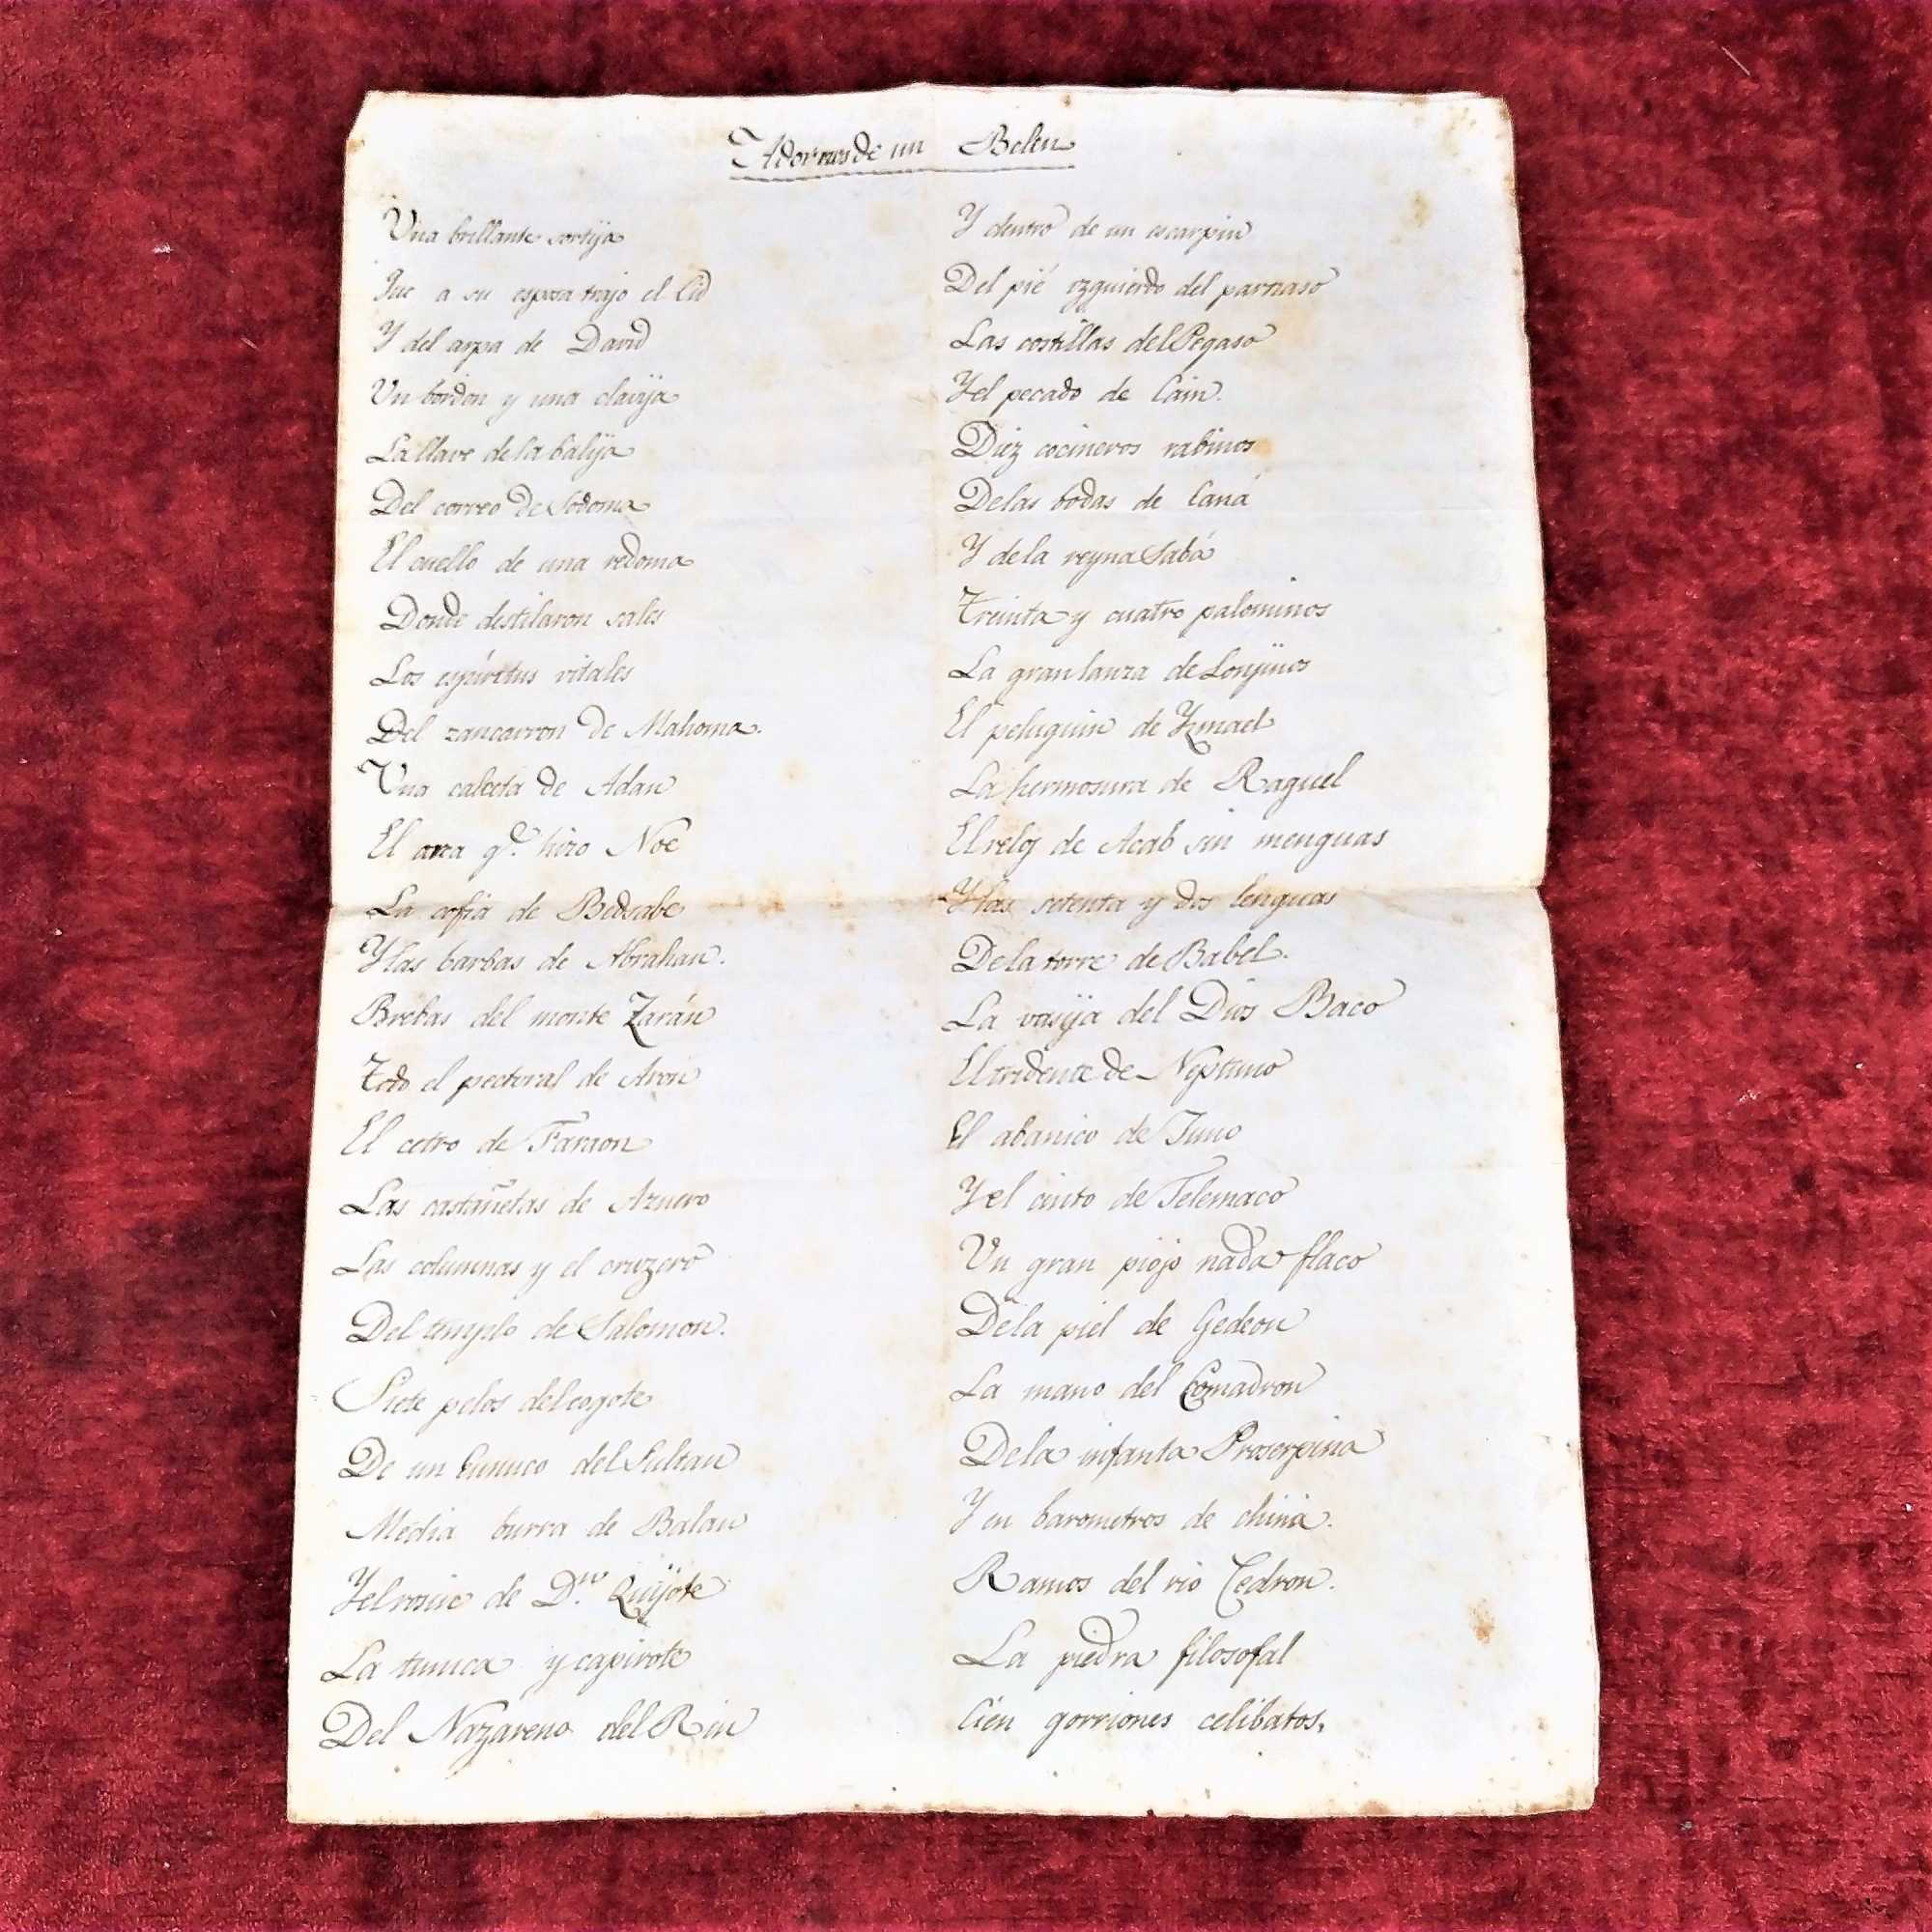 Adornos de un Belen
Una brillante sortija
Que a su esposa trajo el Cid
Y del arpa de David
Un bordon y una clavija
La llave de la balija
Del correo de Sodoma
El cuello de una redoma
Donde destilaron sales
Los espiretus vitales
Del zancarron de Mahoma.
Una calceta de Adan
El arca q.e hizo Noe
La cofia de Bedsabe
Y las barbas de Abrahan.
Brebas del monte Zarán
Todo el pectoral de Aron
El cetro de Faraon
Las castañetas de Aznero
Las columnas y el cruzero
Del templo de Salomon.
Siete pelos del cogote
De un Eunuco del Sultan
Media burra de Balan
Y el rosin de D.n Quijote
La tunica y capirote
Del Nazareno del Rin
Y dentro de un escarpin
Del pié izquierdo del parnaso
Las costillas del Pegaso
Y el pecado de Cain.
Diez cocineros rabinos
De las bodas de Caná
Y de la reyna Sabá
Treinta y cuatro palominos
La gran lanza de Lonjinos
El peluquin de Ysmael
La hermosura de Raguel
El reloj de Acab sin menguas
Y las setenta y dos lenguas
De la torre de Babel.
La vasija del Dios Baco
El tridente de Neptuno
El abanico de Juno
Y el cinto de Telemaco
Un gran piojo nada flaco
De la piel de Gedeon
La mano del Comadron
De la infanta Proserpina
Y en barometros de china.
Ramos del rio Cedron.
La piedra filosofal
Cien gorriones celibatos,